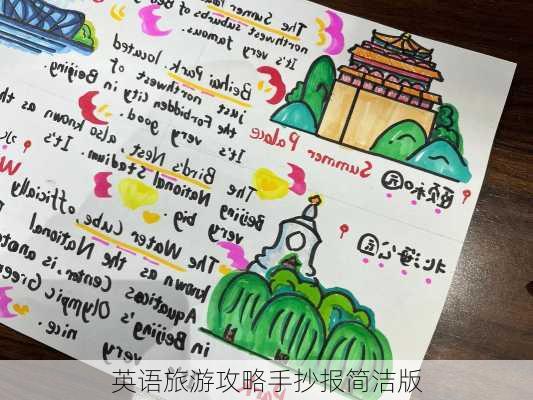 The Summer
northwest suburbs of Be
It's very famous.
Beihai Park, located
just northwest of
the Forbidden City in
Beijing.
It's very good.
Bird's Nest,
also known as th
National Stadium. It's
very big.
The Water Cube, officially
known as the National
Aquatics Center, is anoth
Beijing's Olympic Green
in
very
nice.
The
Beijing
Summer Palace
颐和园
北海公园
Park
英语旅游攻略手抄报简洁版